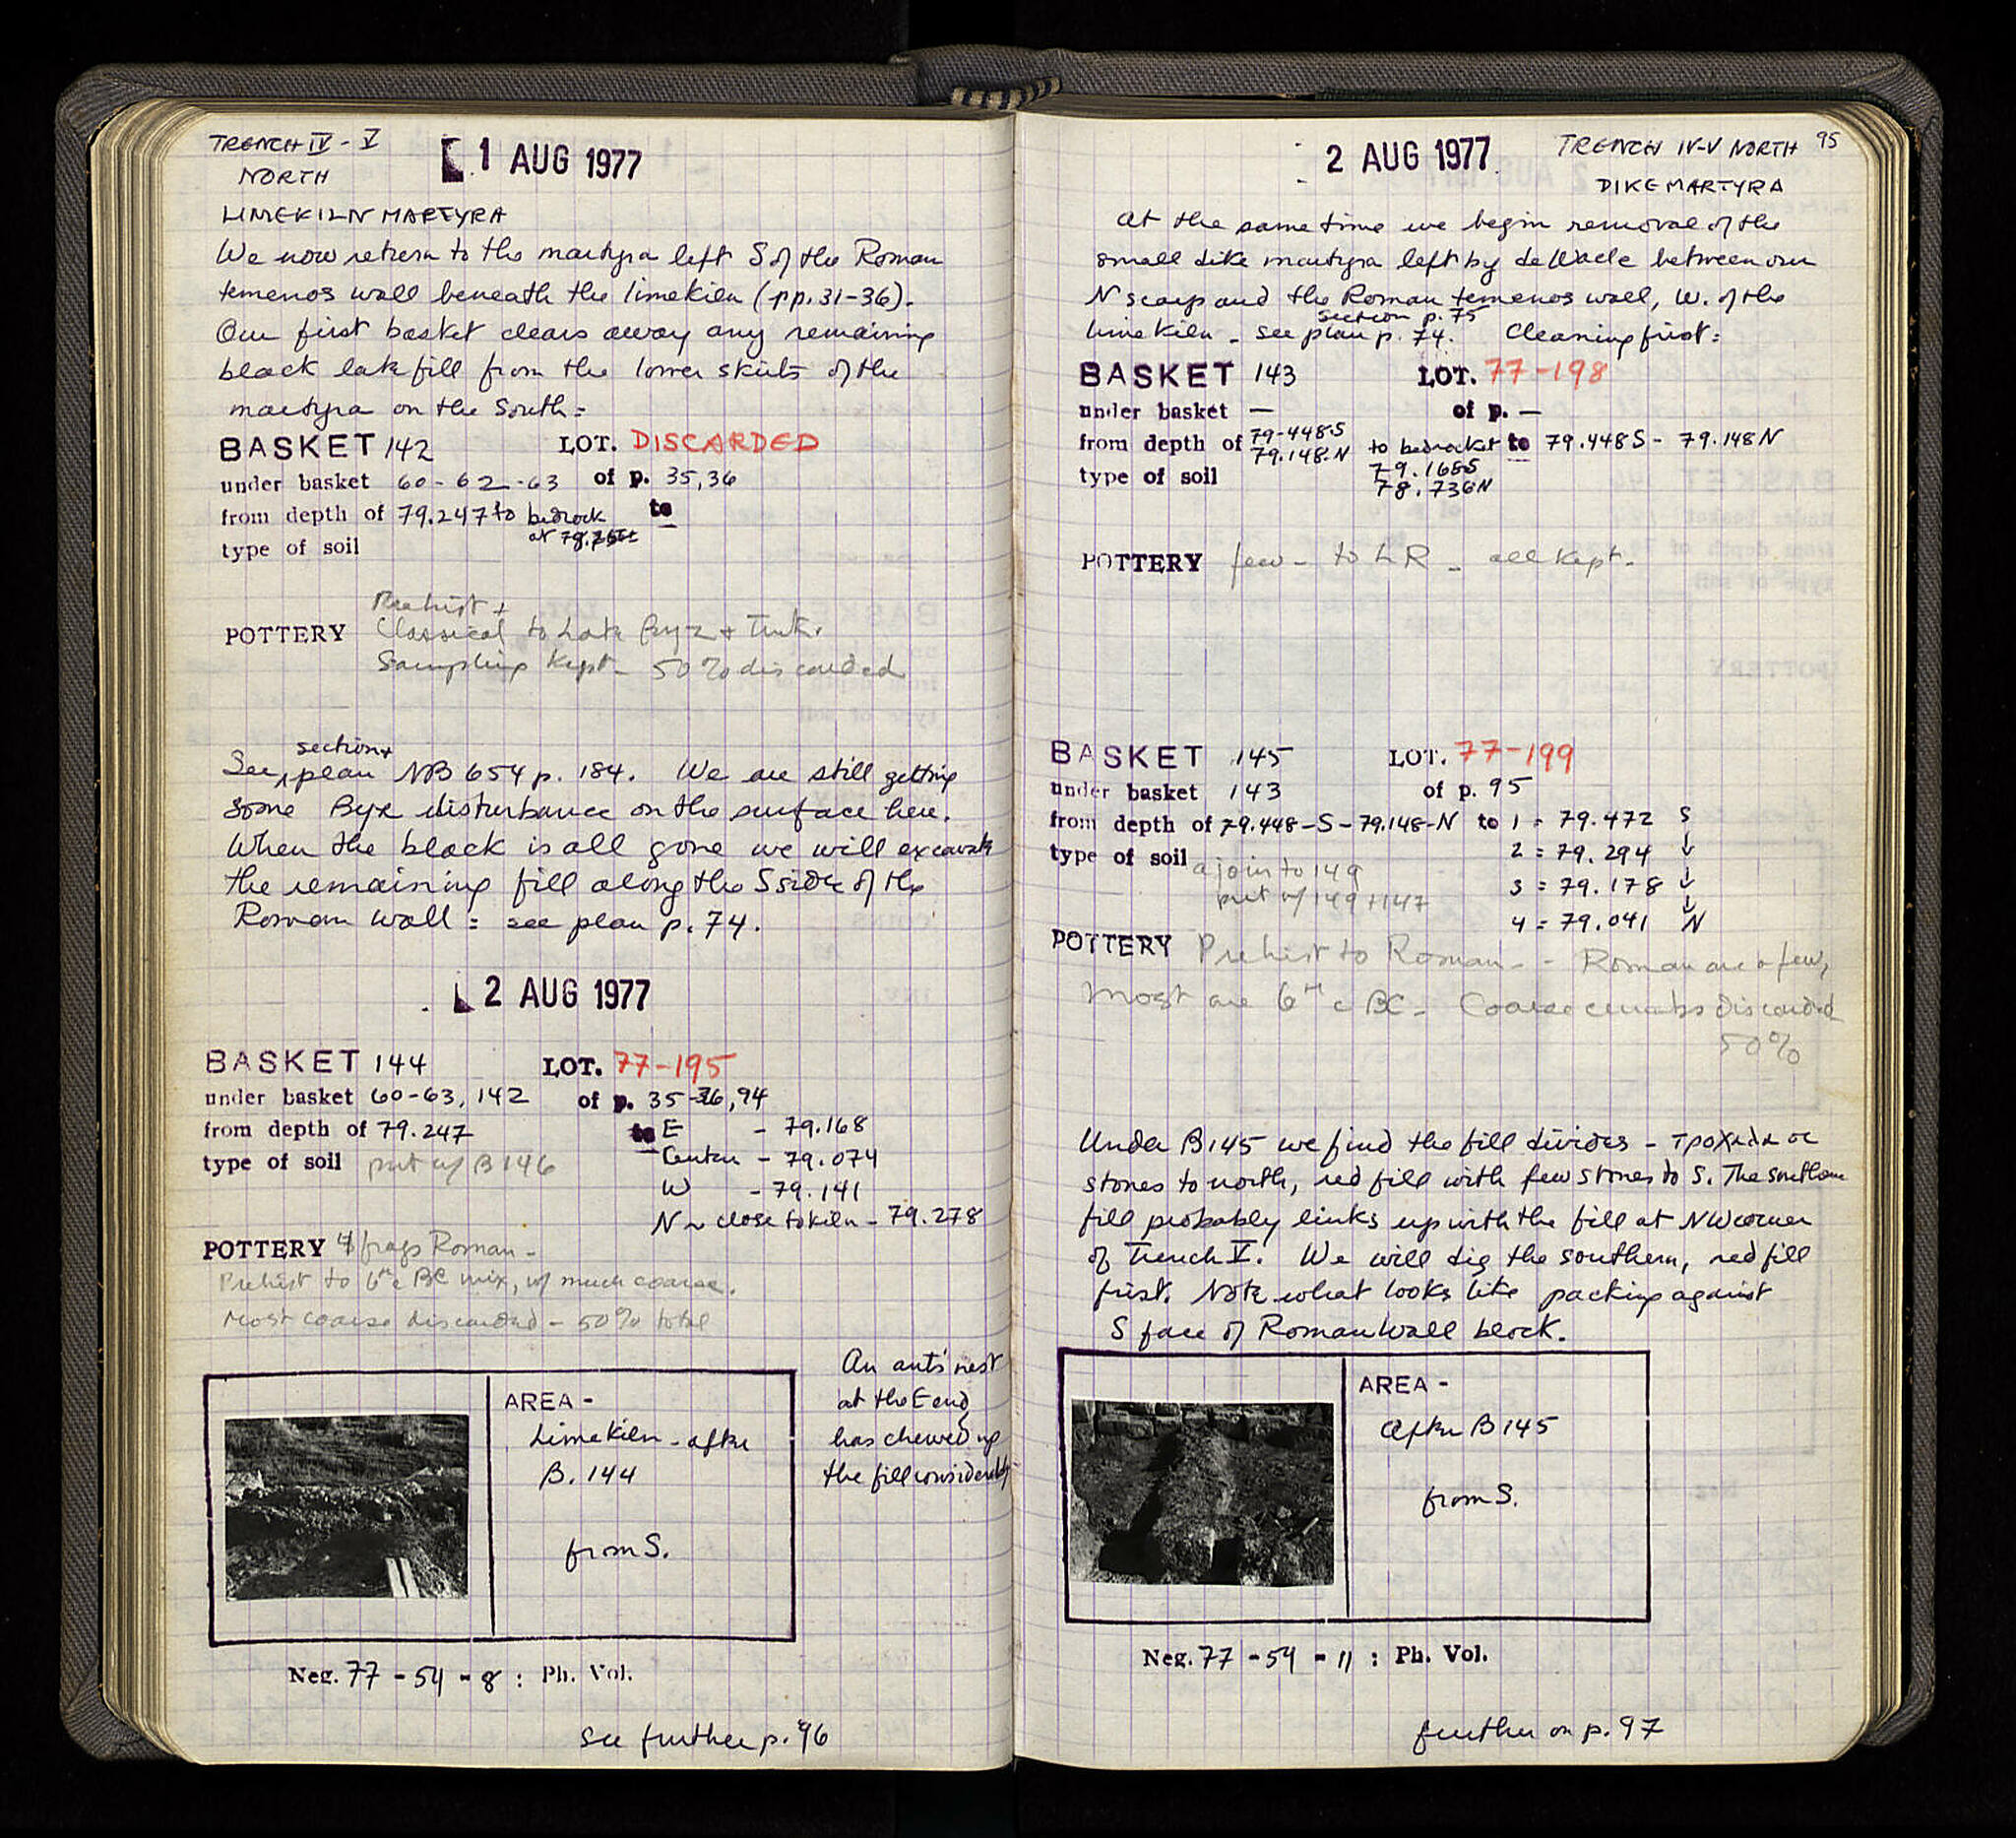 TRENCH IV - V
NORTH
1 AUG 1977
LIMEKILN MARTYRA
We now return to the martyra left S of the Roman
temenos wall beneath the limekiln (pp. 31-36).
Our first basket clears away any remaining
black late fill from the lower skirts of the
martyra on the South:
BASKET 142 LOT. DISCARDED
under basket 60-62-63 of p. 35,36
from depth of 79.247 to bedrock to
at
type of soil
Prehist +
POTTERY Classical to Late Byz + Turk.
Sampling kept - 50% discarded
section +
See plan NB 654 p. 184. We are still getting
some Byz disturbance on the surface here.
When the black is all gone we will excavate
the remaining fill along the S side of the
Roman wall: see plan p. 74.
2 AUG 1977
BASKET 144 LOT. 77-195
under basket 60-63, 142 of p. 35-36, 94
from depth of 79.247 to E - 79.168
type of soil put w/ B146 Center - 79.074
W - 79.141
N ~ close to kiln - 79.278
POTTERY frags Roman -
Prehist to 6th c BC mix, w/ much coarse.
Most coarse discarded - 50% total
An ants' nest
at the E end
has chewed up
the fill considerably
AREA -
Limekiln - after
B. 144
from S.
Neg. 77 - 54 - 8 : Ph. Vol.
see further p. 96
2 AUG 1977
TRENCH IV-V NORTH 95
DIKE MARTYRA
At the same time we begin removal of the
small dike martyra left by deWaele between our
N scarp and the Roman temenos wall, W. of the
section p. 75
limekiln - see plan p. 74. Cleaning first:
BASKET 143 LOT. 77-198
under basket — of p. —
from depth of 79.448 S to bedrocket to 79.448 S - 79.148 N
79.148 N
type of soil 79.168 S
78.736 N
POTTERY few - to LR - all kept.
BASKET 145 LOT. 77-199
under basket 143 of p. 95
from depth of 79.448-S - 79.148-N to 1 = 79.472 S
type of soil 2 = 79.294 ↓
a join to 149
3 = 79.178 ↓
put w/ 149 + 147
4 = 79.041 N
POTTERY Prehist to Roman - - Roman are a few,
Most are 6th c BC - Coarse discarded
50%
Under B145 we find the fill divides - τροχάδα or
stones to north, red fill with few stones to S. The southern
fill probably links up with the fill at NW corner
of Trench V. We will dig the southern, red fill
first. Note what looks like packing against
S face of Roman Wall block.
AREA -
After B 145
from S.
Neg. 77 - 54 - 11 : Ph. Vol.
further on p. 97